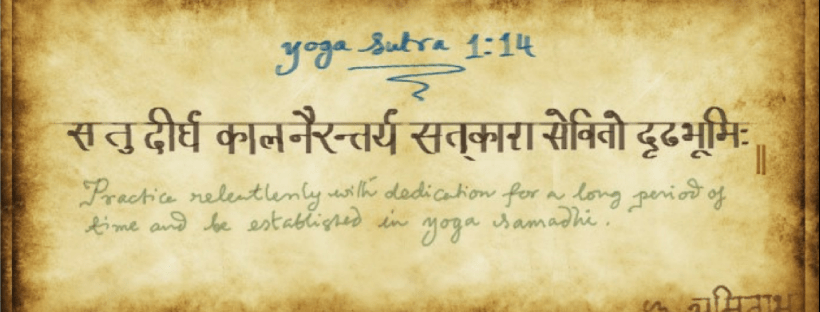 yoga Sutra 1:14
स तु दीर्घ काल नैरन्तर्य सत्कारा सेवितो दृढभूमिः ॥
Practice relentlenly with dedication for a long period of
time and be established in yoga samadhi.